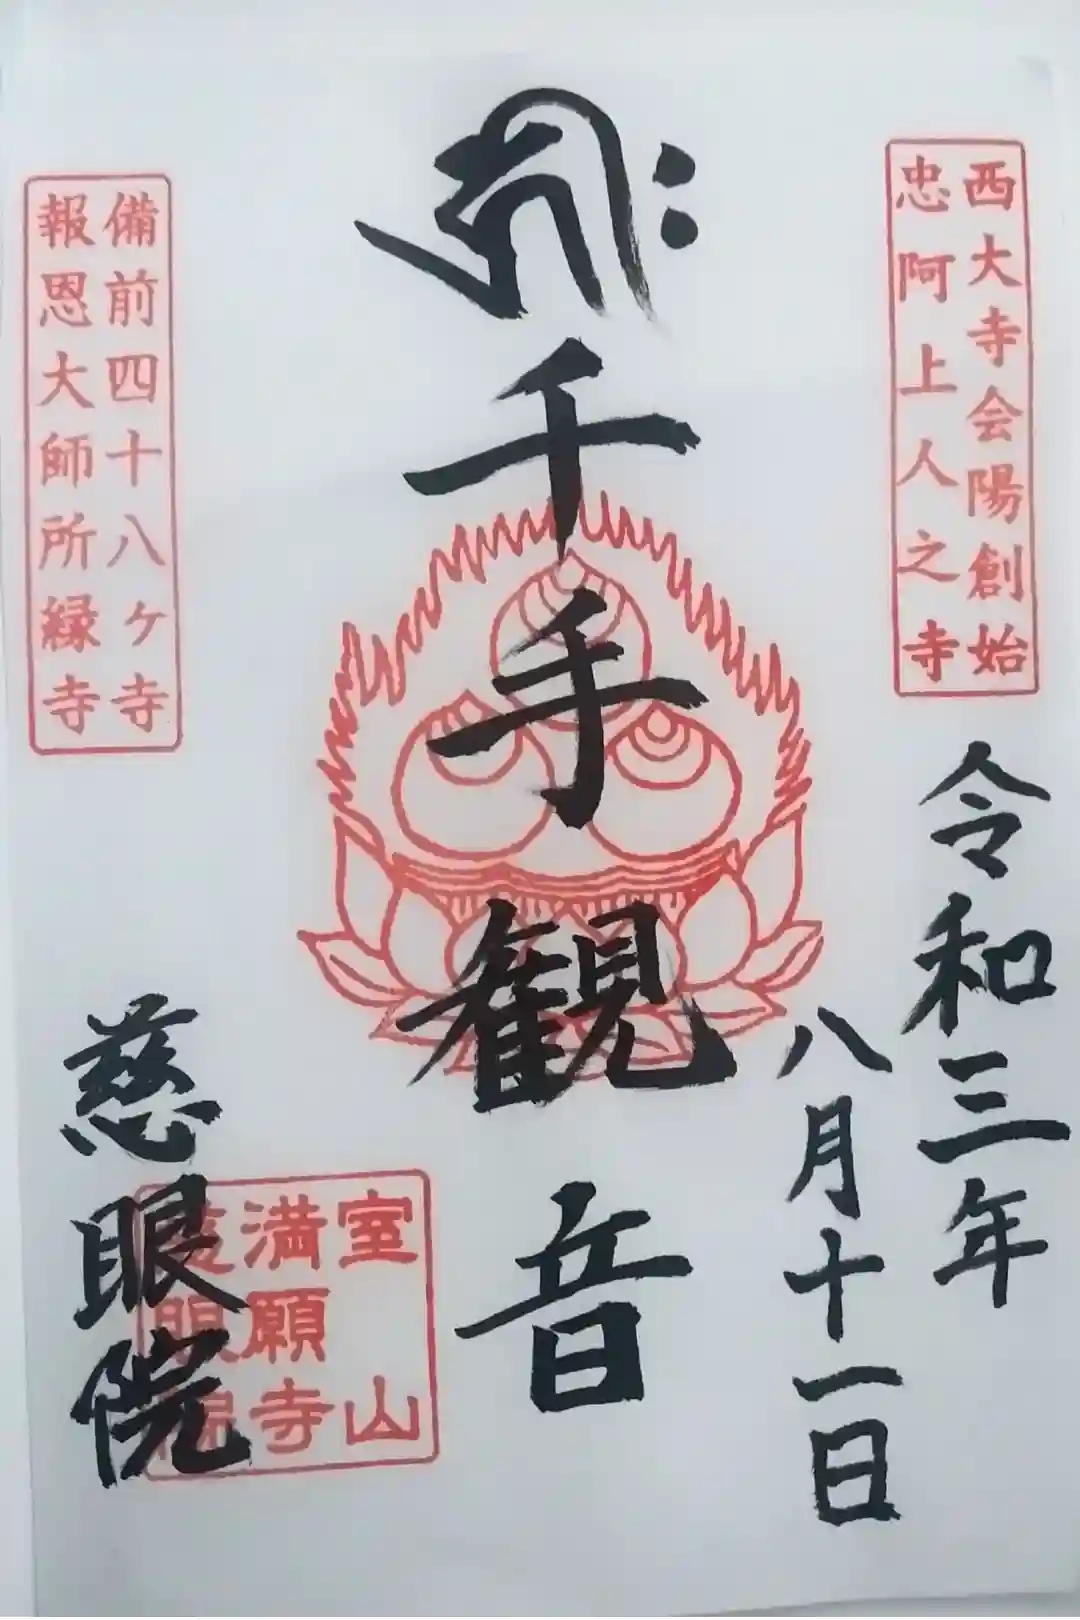 西大寺会陽創始
忠阿上人之寺
令和三年
八月十一日
千手観音
備前四十八ヶ寺
報恩大師所縁寺
室山
満願寺
慈眼院
慈眼院